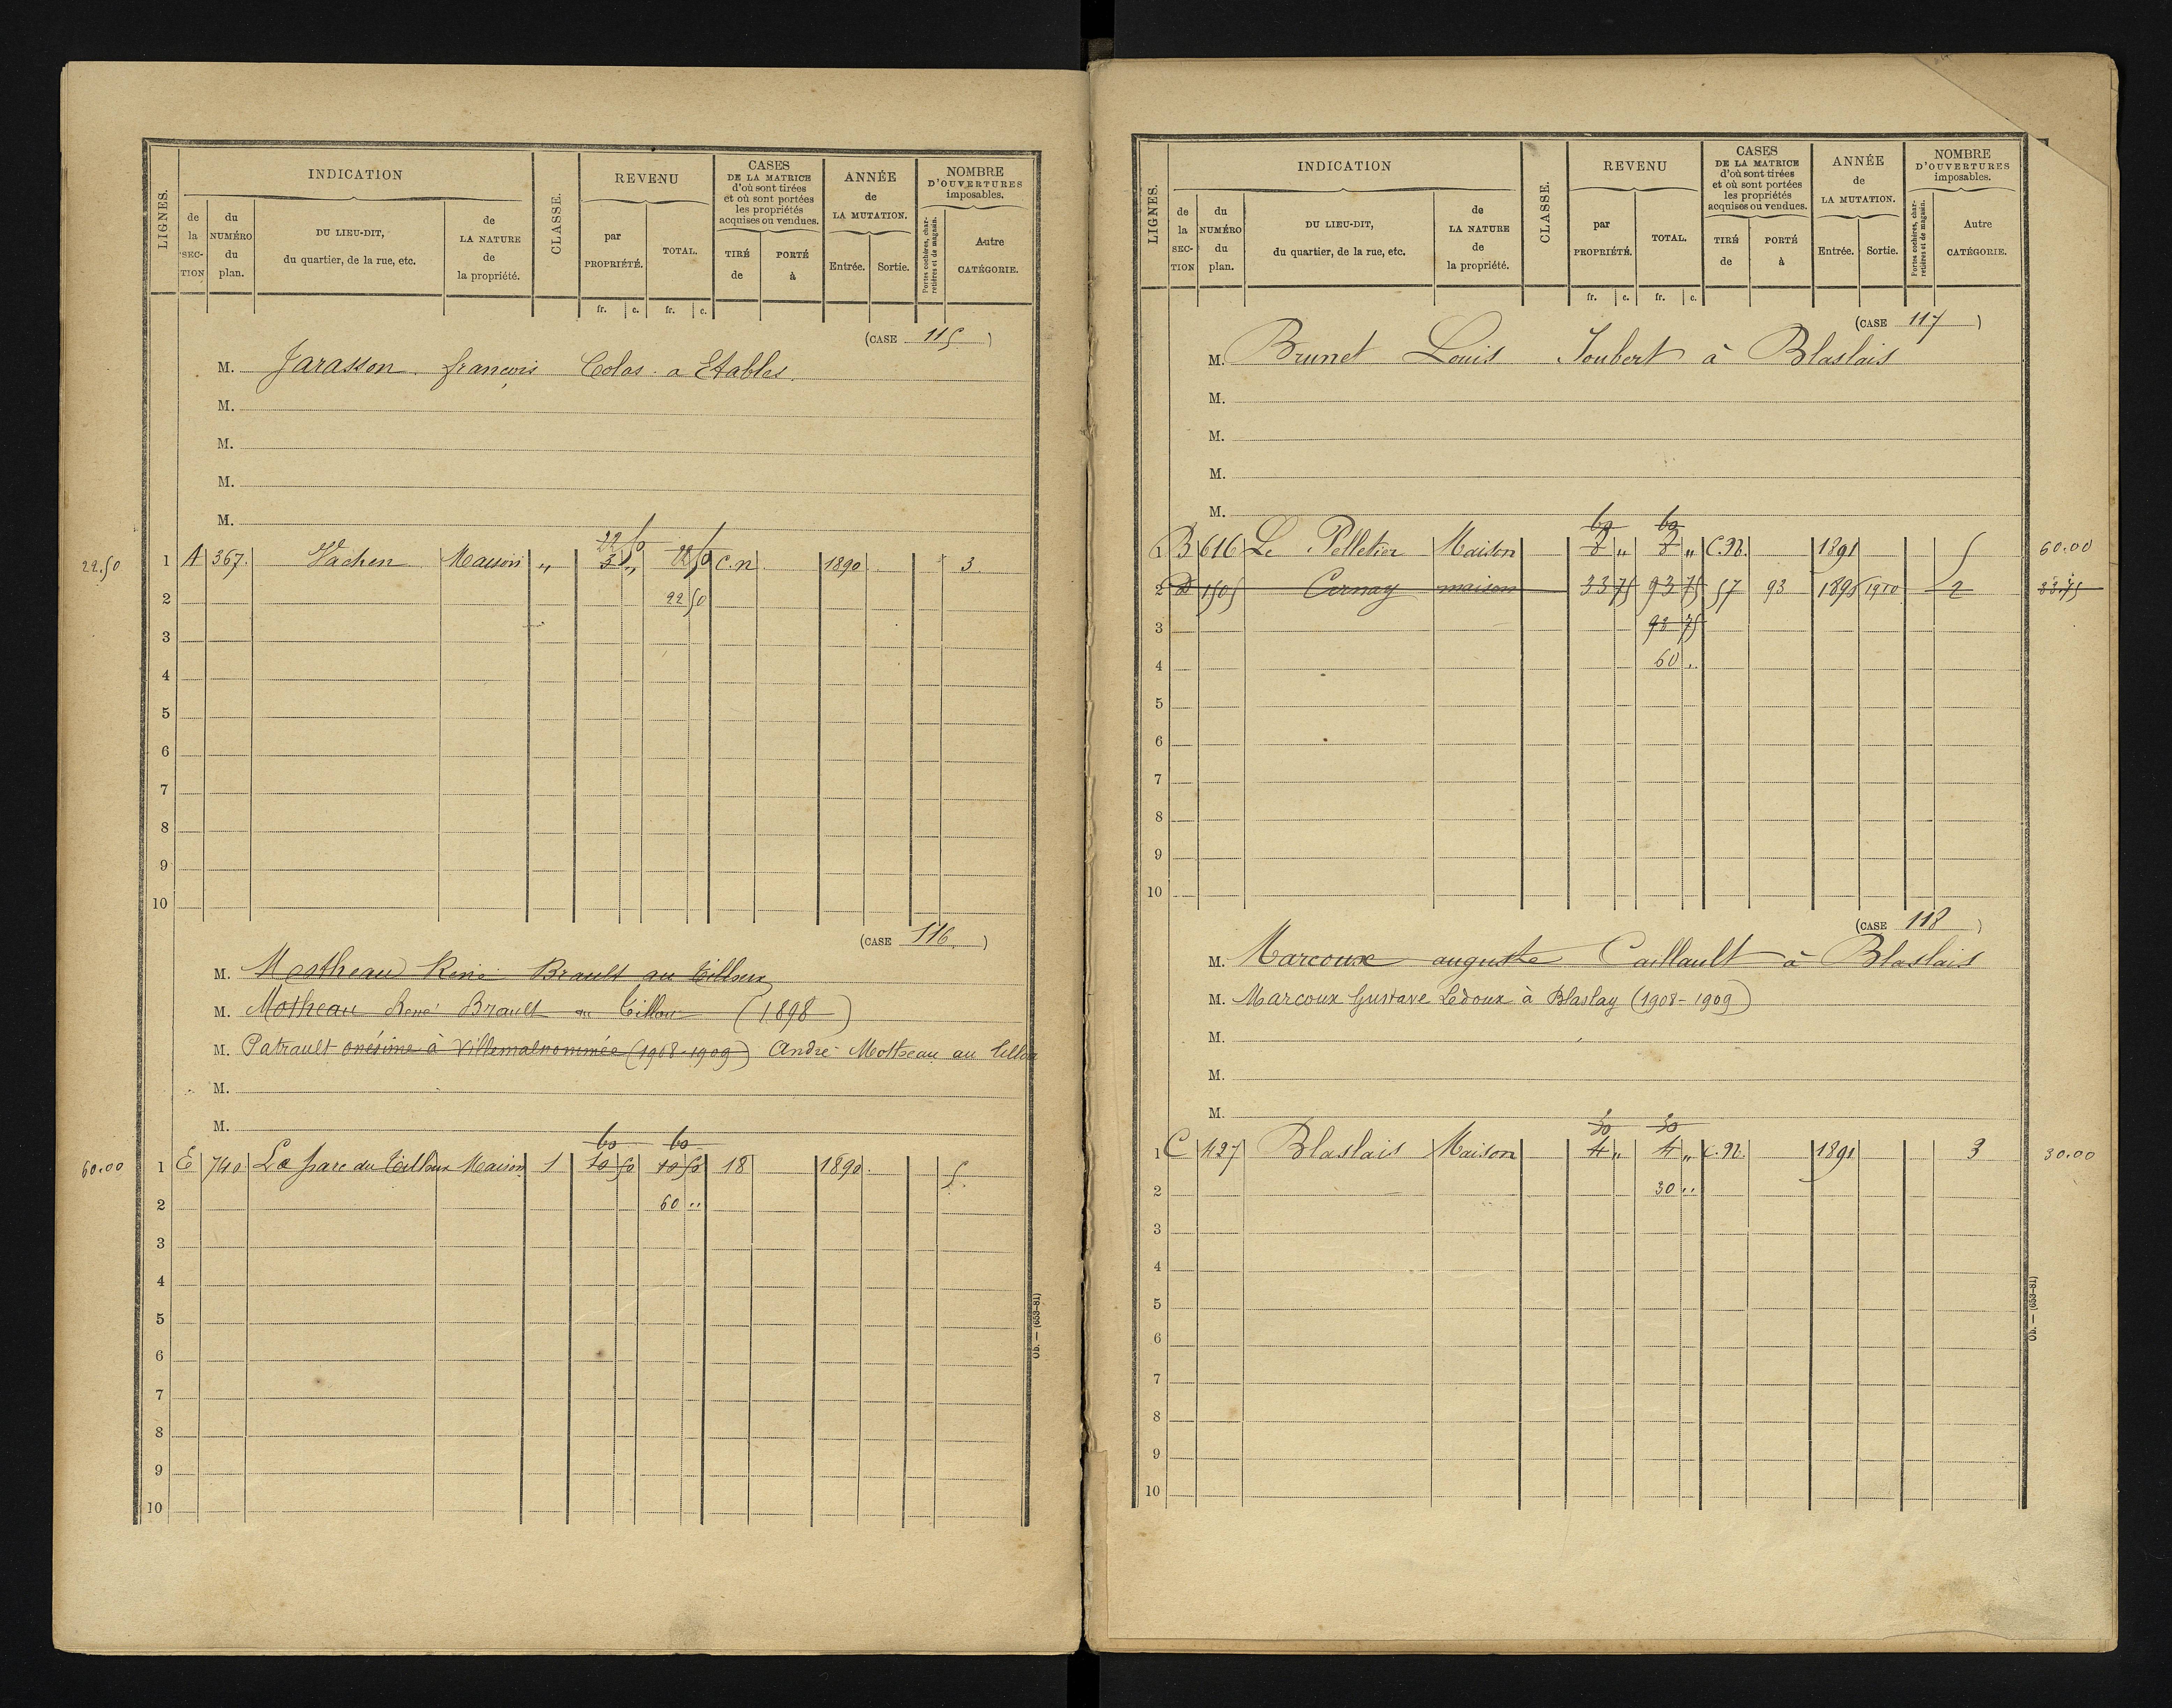 LIGNES.
INDICATION
CLASSE.
REVENU
CASES
DE LA MATRICE
d'où sont tirées
et où sont portées
les propriétés
acquises ou vendues.
ANNÉE
de
LA MUTATION.
NOMBRE
D'OUVERTURES
imposables.
de la SEC-TION
du NUMÉRO du plan.
DU LIEU-DIT,
du quartier, de la rue, etc.
de LA NATURE de la propriété.
par PROPRIÉTÉ.
TOTAL.
TIRÉ de
PORTÉ à
Entrée.
Sortie.
Portes cochères, charretières et de magasin.
Autre CATÉGORIE.
fr. c. fr. c.
(CASE 115)
M. Jarasson françois Colas a Etables.
M.
M.
M.
M.
22 50
22.50 1 A 367. Vachen Maison „ 3 „ 22 50 C.n. 1890 3
2 22 50
3
4
5
6
7
8
9
10
(CASE 116)
M. Mostheau René Brault au Tilloux
M. Motheau René Brault au Tilloux (1898)
M. Patrault onésime à Villemalnommée (1908-1909) André Mottreau au Tilloux
M.
M.
60 60
60.00 1 E 740 Le parc du Tilloux Maison 1 10 50 10 50 18 1890. 5.
2 60 ..
3
4
5
6
7
8
9
10
Ob. — (653-81)
LIGNES.
INDICATION
CLASSE.
REVENU
CASES
DE LA MATRICE
d'où sont tirées
et où sont portées
les propriétés
acquises ou vendues.
ANNÉE
de
LA MUTATION.
NOMBRE
D'OUVERTURES
imposables.
de la SEC-TION
du NUMÉRO du plan.
DU LIEU-DIT,
du quartier, de la rue, etc.
de LA NATURE de la propriété.
par PROPRIÉTÉ.
TOTAL.
TIRÉ de
PORTÉ à
Entrée.
Sortie.
Portes cochères, charretières et de magasin.
Autre CATÉGORIE.
fr. c. fr. c.
(CASE 117)
M. Brunet Louis Joubert à Blaslais
M.
M.
M.
M.
60 60
1 B 616 Le Pelletier Maison 8 „ 8 „ C.N. 1891 5 60.00
2 D 1505 Cernay maison 33 75 93 75 57 93 1896 1910 2 33.75
3 93 75
4 60 ..
5
6
7
8
9
10
(CASE 118)
M. Marcoux auguste Caillault à Blaslais
M. Marcoux Gustave Ledoux à Blaslay (1908-1909)
M.
M.
M.
30 30
1 C 427 Blaslais Maison 4 „ 4 „ C.N. 1891 3 30.00
2 30 ..
3
4
5
6
7
8
9
10
Ob. — (653-81)